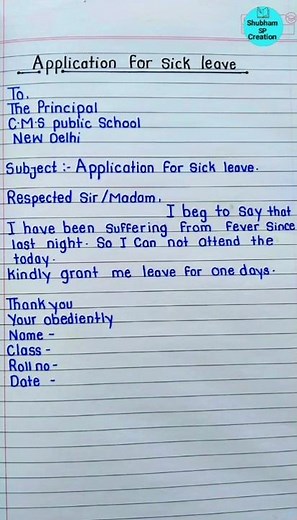 Shubham
SP
Creation
Application for Sick leave
To.
The Principal
C.M.S public School
New Delhi
Subject :- Application for Sick leave.
Respected Sir/Madam,
I beg to say that
I have been suffering from Fever Since
last night. So I Can not attend the
today.
Kindly grant me leave for one days.
Thank you
Your obediently
Name -
Class -
Roll no -
Date -